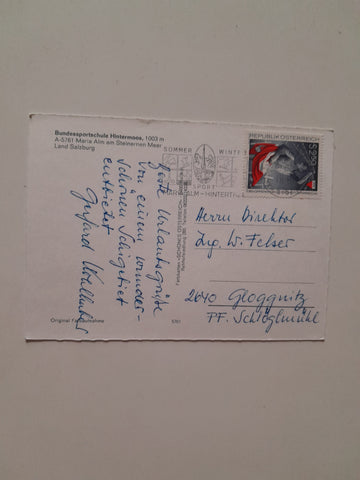 Bundessportschule Hintermoos, 1003 m
A-5761 Maria Alm am Steinernen Meer
Land Salzburg
SOMMER WINTER
SPORT
MARIA ALM - HINTERTHAL
REPUBLIK ÖSTERREICH
S 2.50
Beste Urlaubsgrüße
von „einem wunder-
schönen Schigebiet
entbietet
Gerhard
Herrn Direktor
Ing. W. Felser
2640 Gloggnitz
PF. Schlöglmühl
Original Farbaufnahme
5761